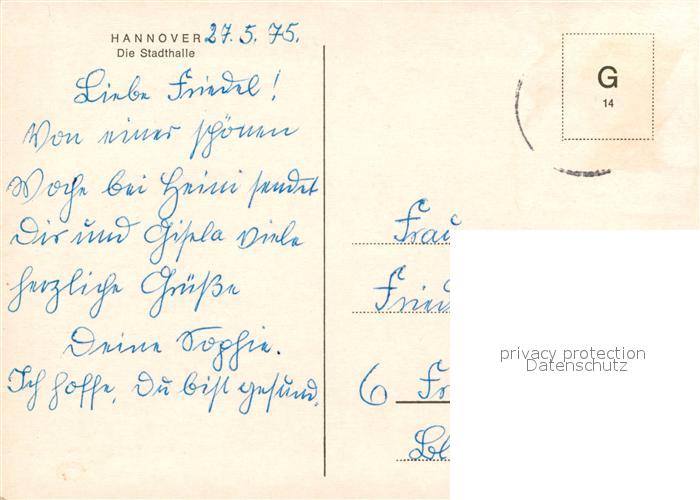 HANNOVER 27. 5. 75.
Die Stadthalle
Liebe Friedel!
Von einer schönen
Woche bei Heini sendet
Dir und Gisela viele
herzliche Grüße
Deine Sophie.
Ich hoffe, Du bist gesund.
G
14
Frau
Fried
6 Fr
Bl
privacy protection
Datenschutz